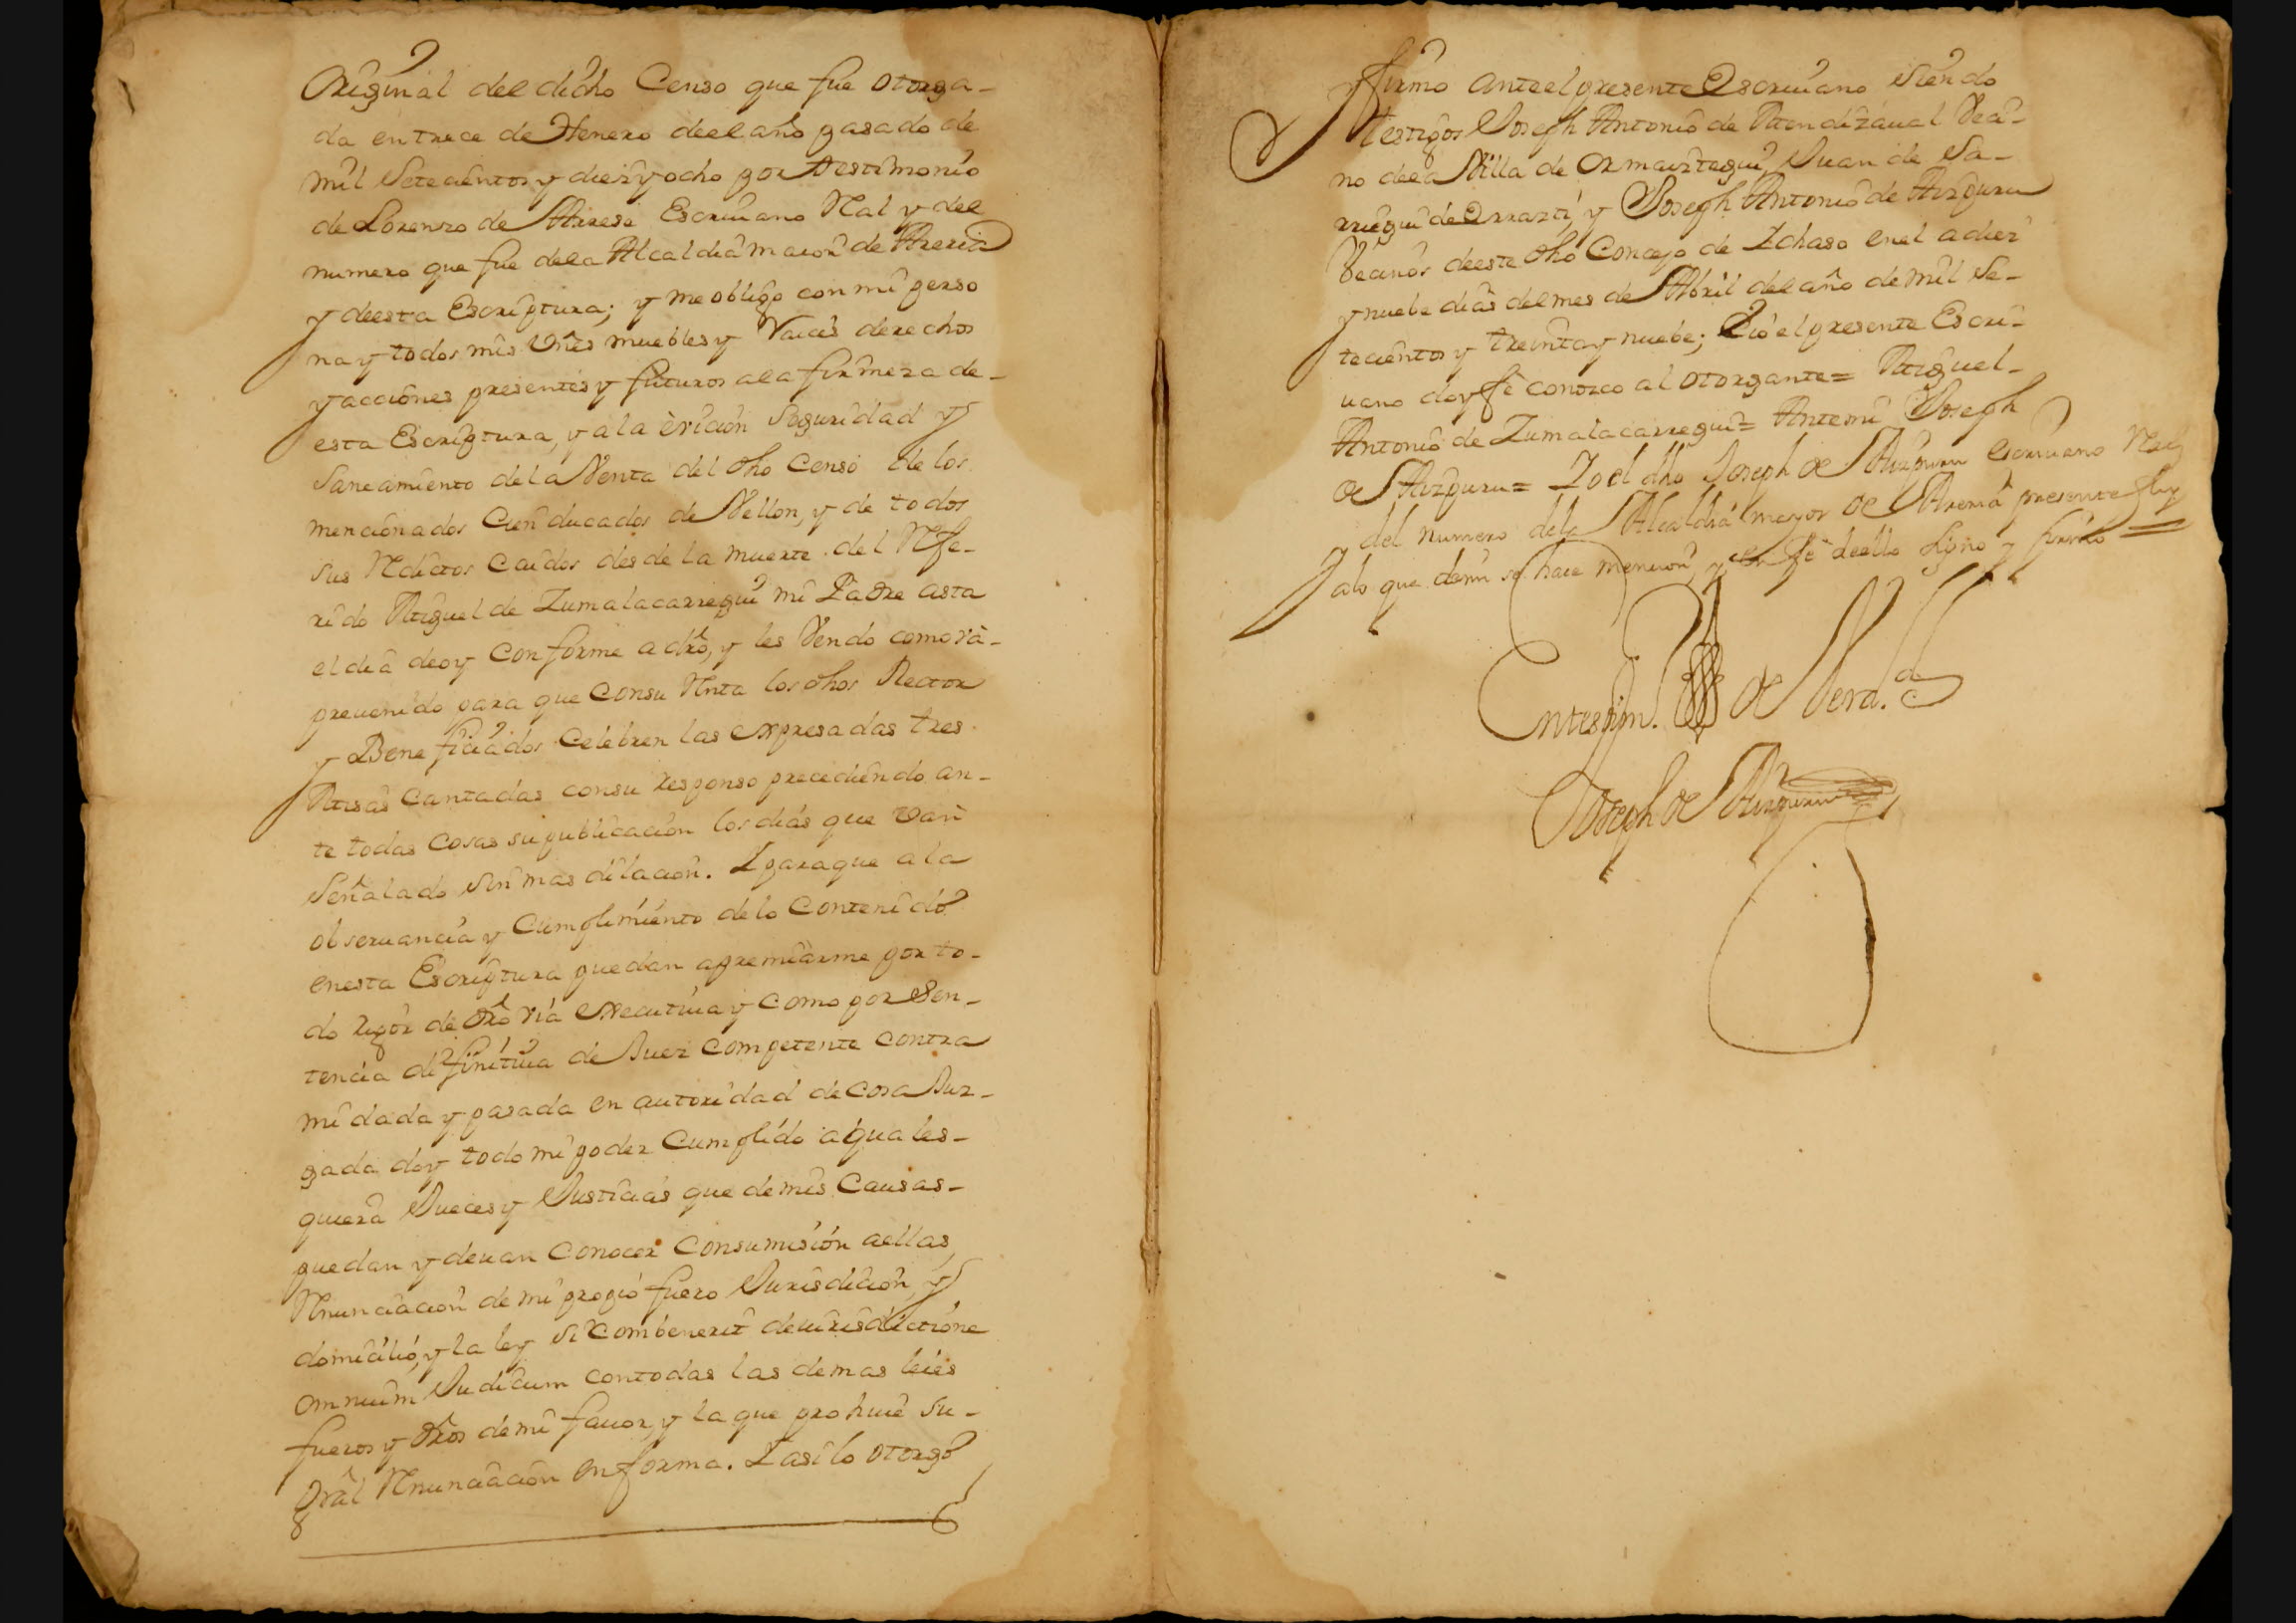 Original del dicho Censo que fue otorga-
da en trece de Henero de el año pasado de
mil Setecientos y diez y ocho por Testimonio
de Lorenzo de Arrese Escriuano Ral y del
numero que fue dela Alcaldia maior de Areria
y deesta Escriptura; y me obligo con mi perso
na y todos mis Vnes muebles y Raices derechos
y acciones presentes y futuros ala firmeza de-
esta Escriptura, y ala èvicion Seguridad y
Saneamiento dela Venta del dho Censo de los
mencionados Cien ducados de Vellon, y de todos
sus Reditos Caidos desde la muerte del Refe-
rido Miguel de Zumalacarregui mi Padre asta
el dia deoy Conforme a dro, y les Vendo como va-
preuenido para que Consu Renta los dhos Rector
y Beneficiados Celebren las expresadas tres
Misas Cantadas consu responso precediendo an-
te todas Cosas su publicacion los dias que van
Señalado sin mas dilacion. I paraque a la
obseruancia y Cumplimiento delo Contenido
enesta Escriptura puedan apremiarme por to-
do rigor de dro via executiua y como por Sen-
tencia difinitiua de Juez Competente Contra
mi dada y pasada en autoridad de Cosa Juz-
gada doy todo mi poder Cumplido a quales-
quiera Jueces y Justicias que demis Causas-
puedan y deuan Conocer Consumision aellas,
Renunciacion de mi propio fuero Jurisdicion, y
domicilio, y la ley si Combenerit deiurisdictione
omnium Judicum contodas las demas leies
fueros y dros demi fauor, y la que prohiue su-
Gral Renunciacion en forma. I asi lo otorgo
y firmo ante el presente Escriuano siendo
testigos Joseph Antonio de Mendizaual Veci-
no dela Villa de Ormaiztegui, Juan de Sa-
rriegui de Errazti, y Joseph Antonio de Aizpuru
Vecinos deeste dho Concejo de Ichaso enel a diez
y nuebe dias del mes de Abril del año de mil Se-
tecientos y treinta y nuebe; E io el presente Escri-
uano doy fe conozco al otorgante= Miguel-
Antonio de Zumalacarregui= Antemi Joseph
de Aizpuru= Io el dho Joseph de Aizpuru Escriuano Real
del numero dela Alcaldia mayor de Areria presente fuy
alo que demi se hace mencion, y en fe deello signo y firmo
En testim.º de Verd.d
Joseph de Aizpuru